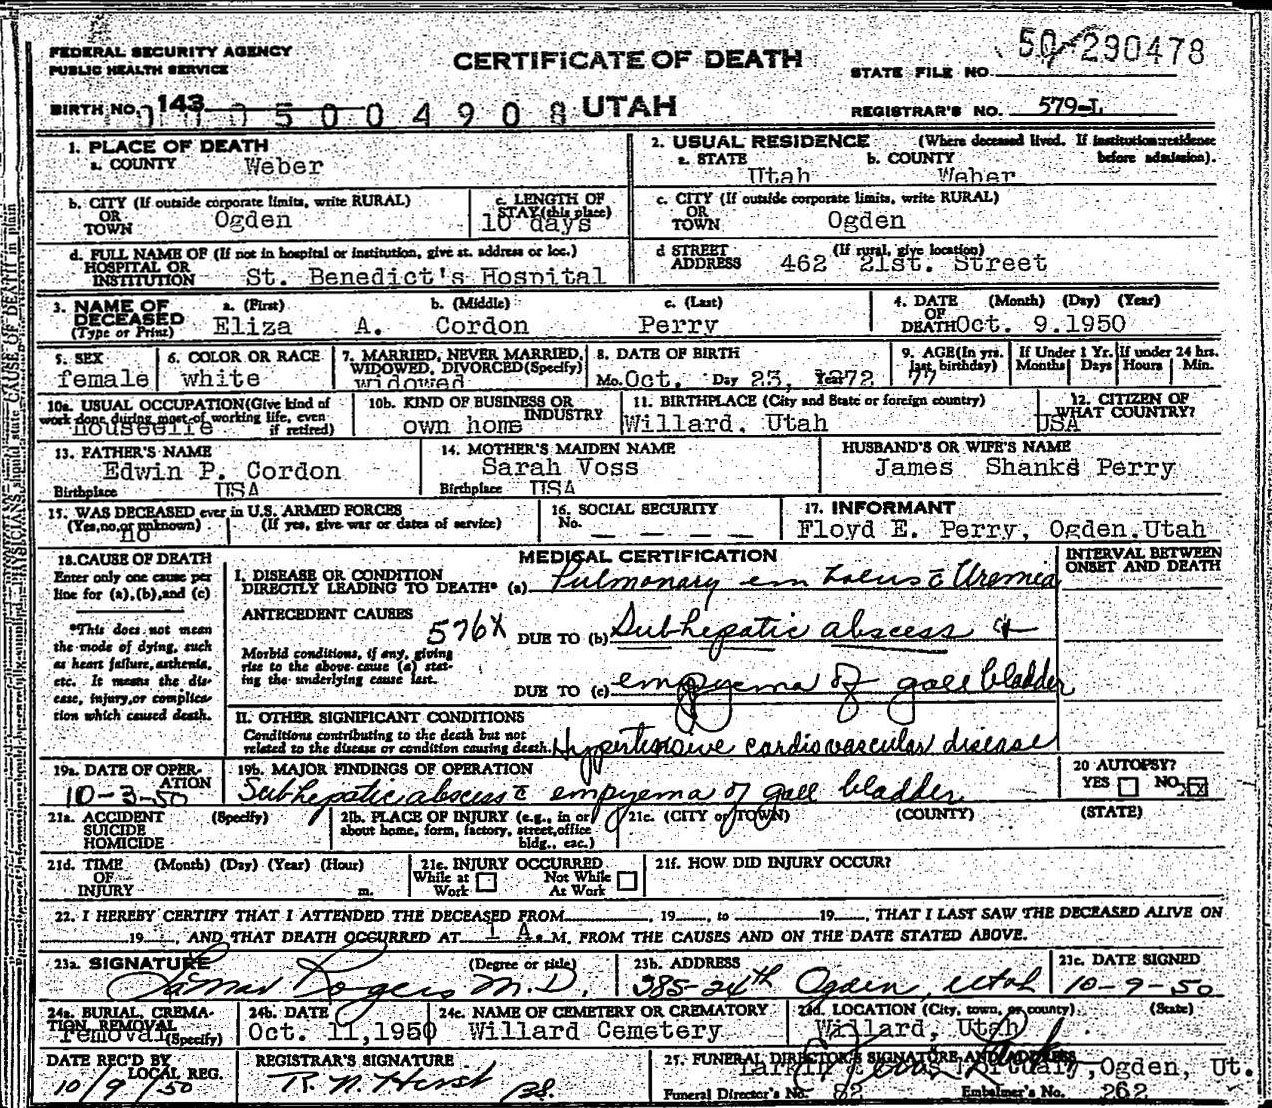 FEDERAL SECURITY AGENCY
PUBLIC HEALTH SERVICE
CERTIFICATE OF DEATH
50-290478
STATE FILE NO.
BIRTH NO. 143
0005004908
UTAH
REGISTRAR'S NO. 579-L
1. PLACE OF DEATH
a. COUNTY Weber
2. USUAL RESIDENCE (Where deceased lived. If institution: residence before admission).
a. STATE Utah b. COUNTY Weber
b. CITY (If outside corporate limits, write RURAL)
OR TOWN Ogden
c. LENGTH OF STAY (this place) 10 days
c. CITY (If outside corporate limits, write RURAL)
OR TOWN Ogden
d. FULL NAME OF (If not in hospital or institution, give st. address or loc.)
HOSPITAL OR INSTITUTION St. Benedict's Hospital
d STREET ADDRESS (If rural, give location) 462 21st. Street
3. NAME OF DECEASED (Type or Print)
a. (First) Eliza b. (Middle) A. Cordon c. (Last) Perry
4. DATE OF DEATH (Month) (Day) (Year) Oct. 9.1950
5. SEX female
6. COLOR OR RACE white
7. MARRIED, NEVER MARRIED, WIDOWED, DIVORCED (Specify) widowed
8. DATE OF BIRTH Mo. Oct. Day 23, Year 1872
9. AGE (In yrs. last birthday) 77
If Under 1 Yr. Months Days
If under 24 hrs. Hours Min.
10a. USUAL OCCUPATION (Give kind of work done during most of working life, even if retired) housewife
10b. KIND OF BUSINESS OR INDUSTRY own home
11. BIRTHPLACE (City and State or foreign country) Willard, Utah
12. CITIZEN OF WHAT COUNTRY? USA
13. FATHER'S NAME Edwin P. Cordon
Birthplace USA
14. MOTHER'S MAIDEN NAME Sarah Voss
Birthplace USA
HUSBAND'S OR WIFE'S NAME James Shanks Perry
15. WAS DECEASED ever in U.S. ARMED FORCES
(Yes, no, or unknown) no (If yes, give war or dates of service)
16. SOCIAL SECURITY No. _ _ _ _
17. INFORMANT Floyd E. Perry, Ogden, Utah
18. CAUSE OF DEATH
Enter only one cause per line for (a), (b), and (c)
*This does not mean the mode of dying, such as heart failure, asthenia, etc. It means the disease, injury, or complication which caused death.
MEDICAL CERTIFICATION
INTERVAL BETWEEN ONSET AND DEATH
I. DISEASE OR CONDITION DIRECTLY LEADING TO DEATH* (a) Pulmonary embolus c̄ Uremia
ANTECEDENT CAUSES
576X
DUE TO (b) Subhepatic abscess c̄
Morbid conditions, if any, giving rise to the above cause (a) stating the underlying cause last.
DUE TO (c) empyema of gall bladder
II. OTHER SIGNIFICANT CONDITIONS
Conditions contributing to the death but not related to the disease or condition causing death. Hypertensive cardiovascular disease
19a. DATE OF OPERATION 10-3-50
19b. MAJOR FINDINGS OF OPERATION
Subhepatic abscess c̄ empyema of gall bladder
20 AUTOPSY? YES NO XX
21a. ACCIDENT SUICIDE HOMICIDE (Specify)
21b. PLACE OF INJURY (e.g., in or about home, form, factory, street, office bldg., esc.)
21c. (CITY or TOWN) (COUNTY) (STATE)
21d. TIME OF INJURY (Month) (Day) (Year) (Hour) m.
21e. INJURY OCCURRED While at Work Not While At Work
21f. HOW DID INJURY OCCUR?
22. I HEREBY CERTIFY THAT I ATTENDED THE DECEASED FROM , 19 , to 19 , THAT I LAST SAW THE DECEASED ALIVE ON
19 , AND THAT DEATH OCCURRED AT 1 A. M. FROM THE CAUSES AND ON THE DATE STATED ABOVE.
23a. SIGNATURE (Degree or title) Rogers M.D.
23b. ADDRESS 385-24th Ogden, Utah
23c. DATE SIGNED 10-9-50
24a. BURIAL, CREMATION, REMOVAL (Specify) removal
24b. DATE Oct. 11,1950
24c. NAME OF CEMETERY OR CREMATORY Willard Cemetery
24d. LOCATION (City, town, or county) (State) Willard, Utah
DATE REC'D BY LOCAL REG. 10/9/50
REGISTRAR'S SIGNATURE
25. FUNERAL DIRECTOR'S SIGNATURE AND ADDRESS
Larkin & Sons Mortuary, Ogden, Ut.
Funeral Director's No. 82 Embalmer's No. 262